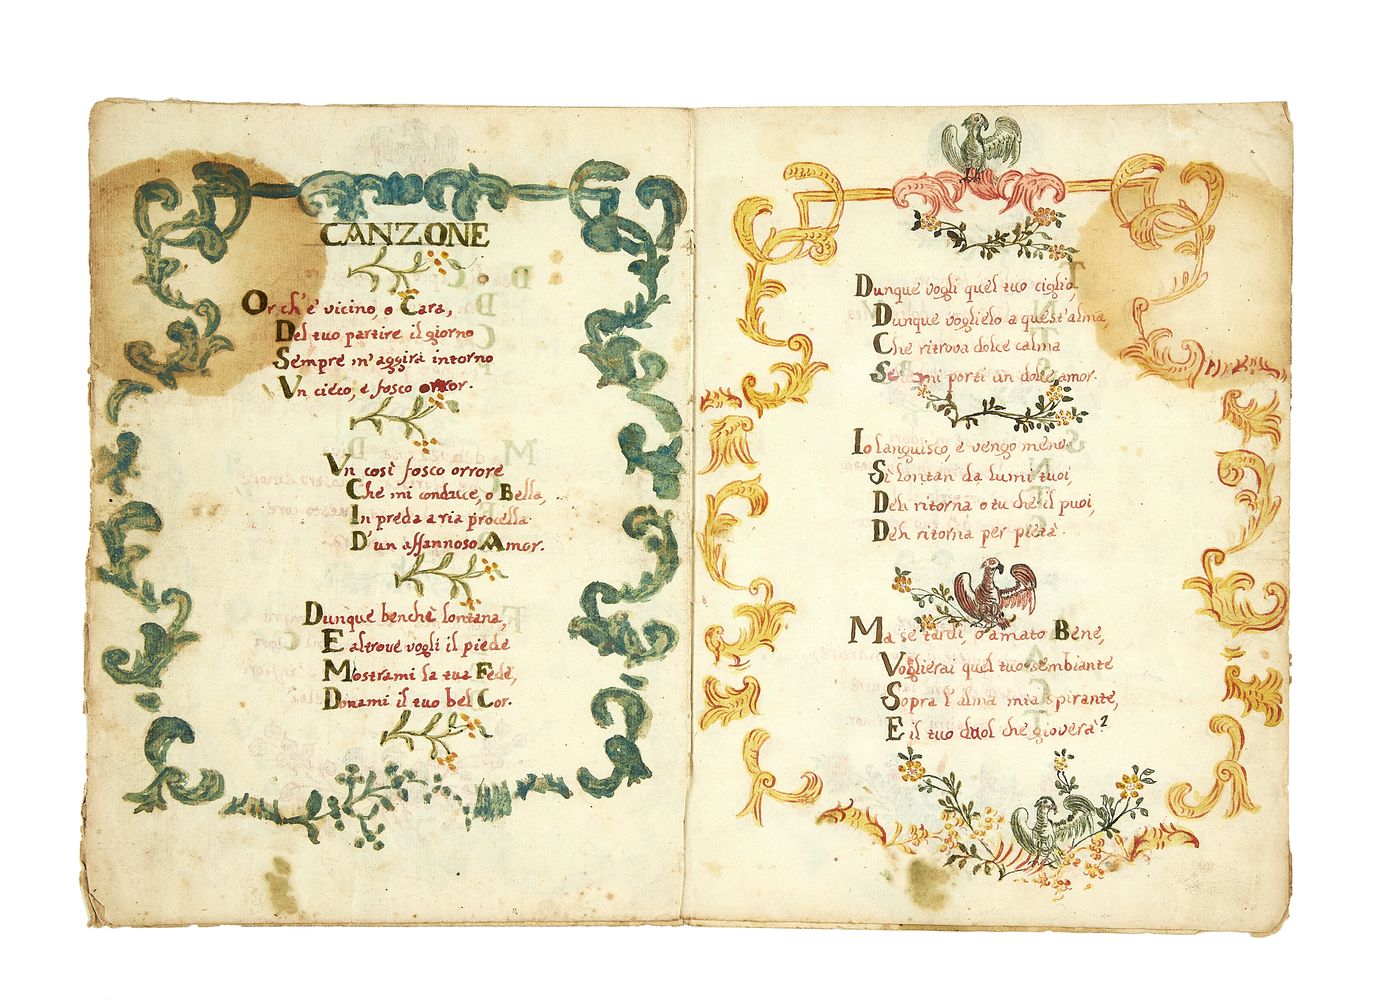 CANZONE
Or ch'è vicino, o Cara,
Del tuo partire il giorno
Sempre m'aggira intorno
Un cieco, e fosco orror.
Vn così fosco orrore
Che mi conduce, o Bella,
In preda a ria procella
D'un affannoso Amor.
Dunque benche lontana,
E altrove vogli il piede
Mostrami la tua Fede,
Donami il tuo bel Cor.
Dunque vogli quel tuo ciglio,
Dunque voglielo a quest'alma,
Che ritrova dolce calma
Se mi porti un dolce amor.
Io languisco, e vengo meno
Sì lontan da lumi tuoi,
Deh ritorna o tu che il puoi,
Deh ritorna per pietà.
Ma se tardi, o amato Bene,
Voglierai quel tuo sembiante
Sopra l'alma mia spirante,
E il tuo duol che gioverà?